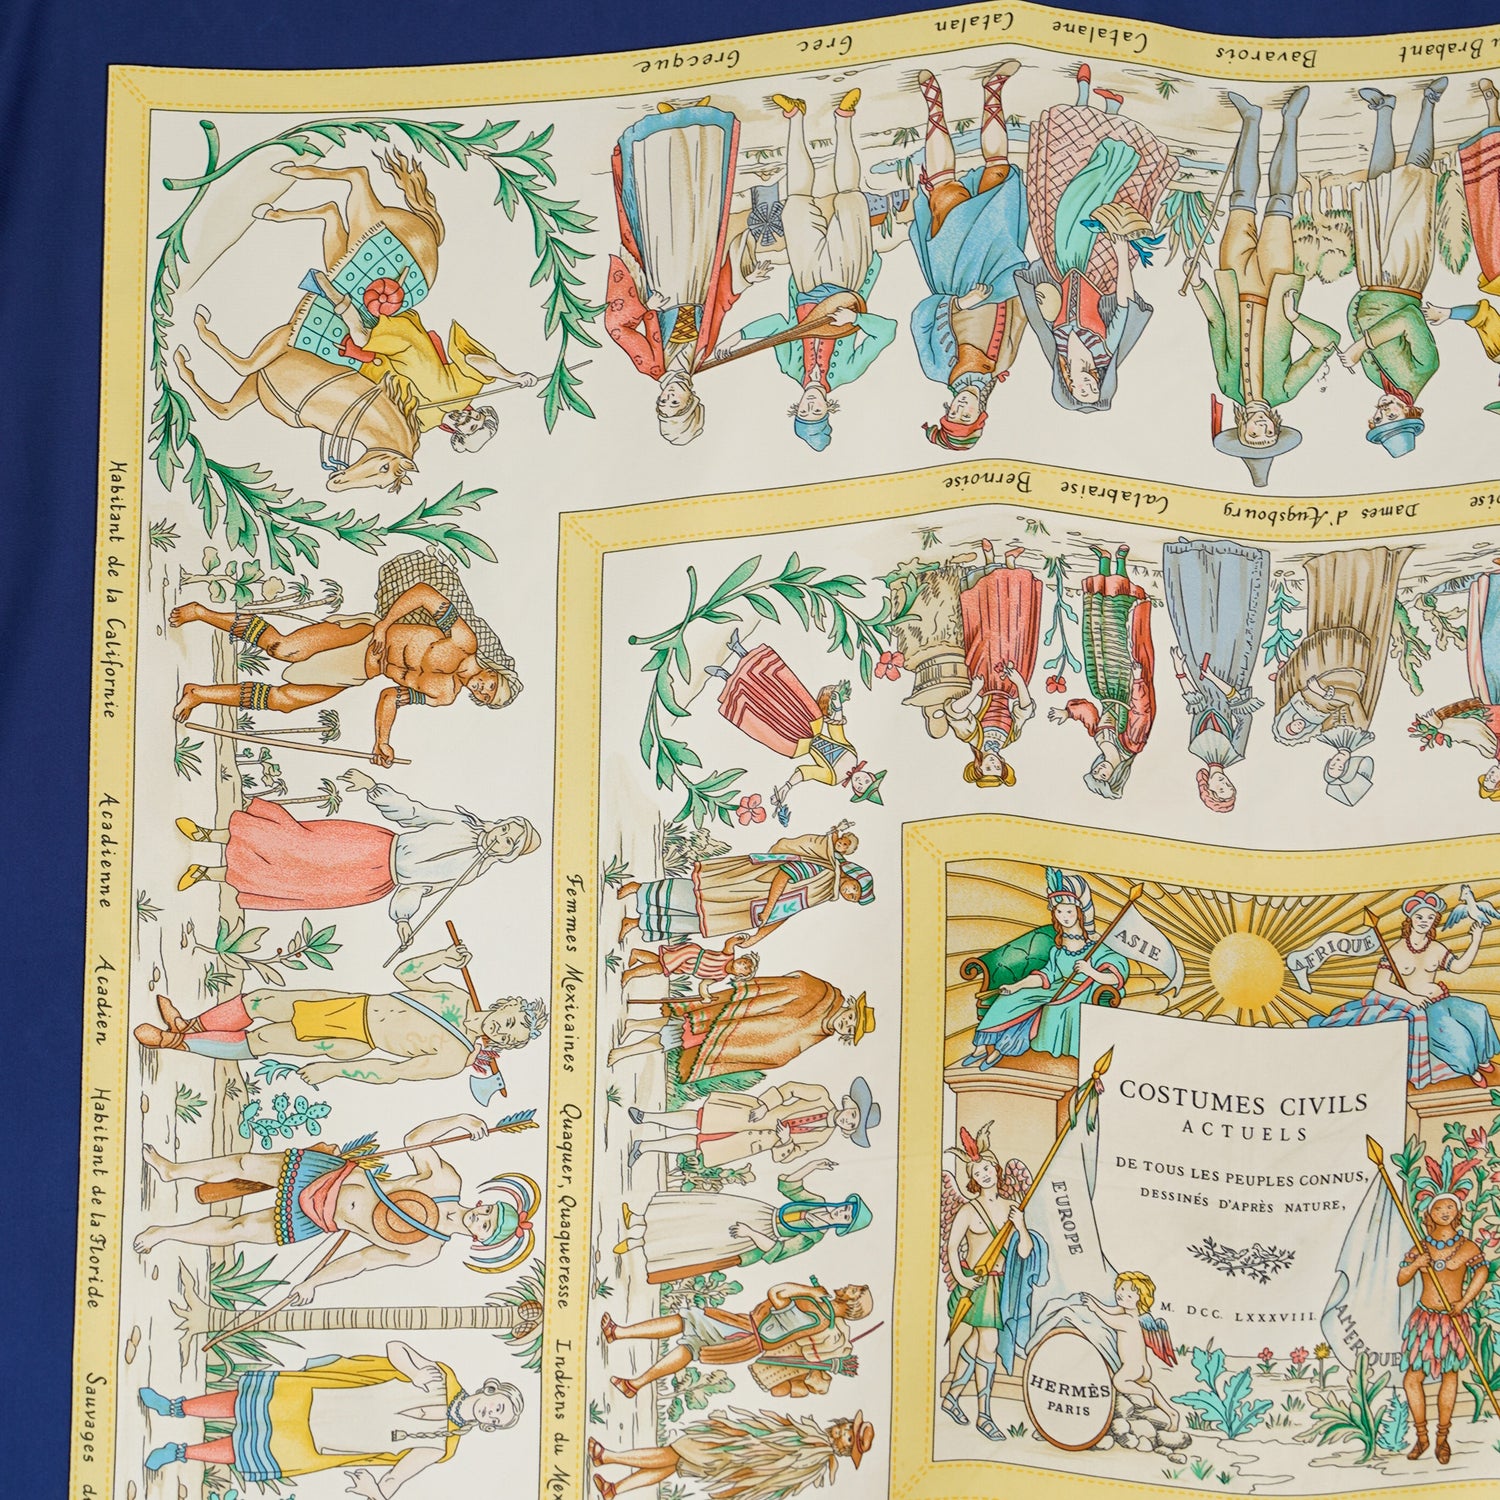 Brabant
Bavarois
Catalane
Catalan
Grec
Grecque
Dames d'Augsbourg
Calabraise
Bernoise
Habitant de la Californie
Acadienne
Acadien
Habitant de la Floride
Sauvages
Femmes Mexicaines
Quaquer, Quaqueresse
Indiens du
ASIE
AFRIQUE
EUROPE
AMERIQUE
COSTUMES CIVILS
ACTUELS
DE TOUS LES PEUPLES CONNUS,
DESSINÉS D'APRÈS NATURE,
M. DCC. LXXXVIII.
HERMÈS
PARIS